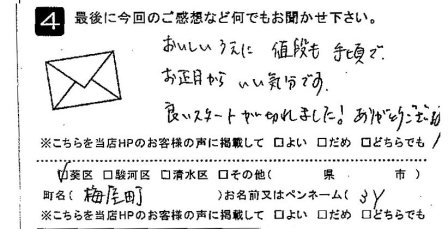 4 最後に今回のご感想など何でもお聞かせ下さい。
おいしいうえに 値段も 手頃で、
お正月から いい気分です。
良いスタートが切れました! ありがとうござ
※こちらを当店HPのお客様の声に掲載して □よい □だめ □どちらでも
□葵区 □駿河区 □清水区 □その他( 県 市 )
町名( 梅屋町 )お名前又はペンネーム( 3Y
※こちらを当店HPのお客様の声に掲載して □よい □だめ □どちらでも